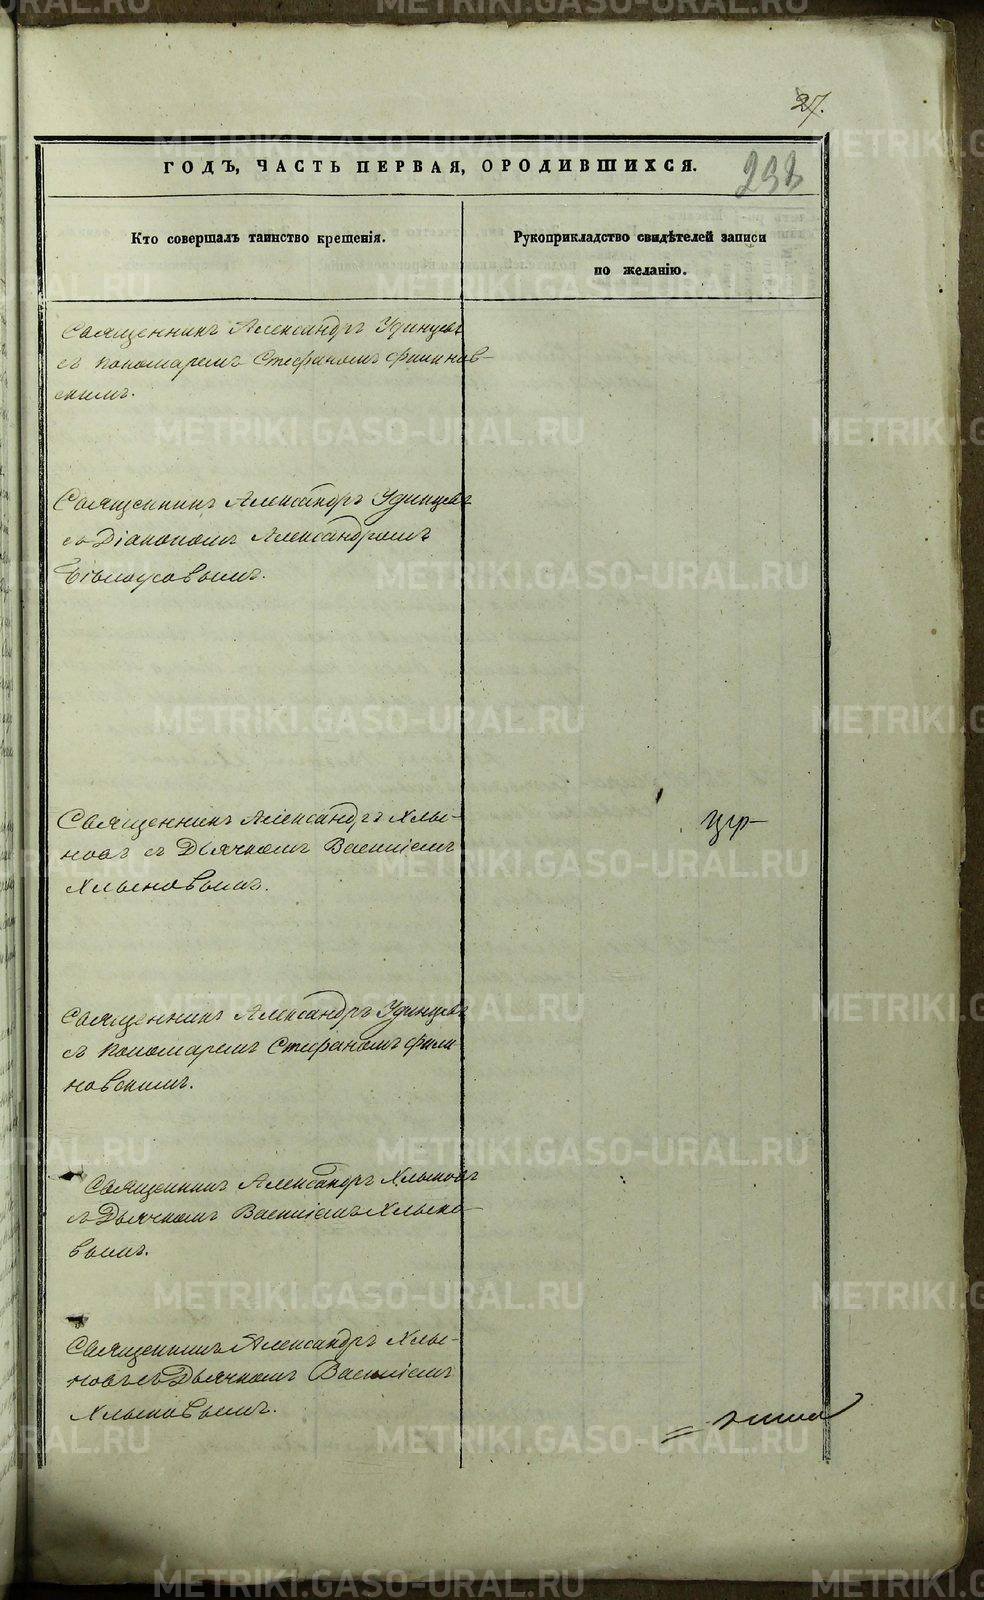 27.
ГОДЪ, ЧАСТЬ ПЕРВАЯ, О РОДИВШИХСЯ.
Кто совершалъ таинство крещенія.
Рукоприкладство свидѣтелей записи
по желанію.
Священникъ Александръ Удинцевъ
съ пономаремъ Стефаномъ Филинов-
скимъ.
Священникъ Александръ Удинцевъ
съ Діакономъ Александромъ
Бѣлоусовымъ.
Священникъ Александръ Хлы-
новъ съ Дьячкомъ Василіемъ
Хлыновымъ.
Священникъ Александръ Удинцевъ
съ пономаремъ Стефаномъ Фили
новскимъ.
Священникъ Александръ Хлыновъ
съ Дьячкомъ Василіемъ Хлыно-
вымъ.
Священникъ Александръ Хлы-
новъ съ Дьячкомъ Василіемъ
Хлыновымъ.
METRIKI.GASO-URAL.RU